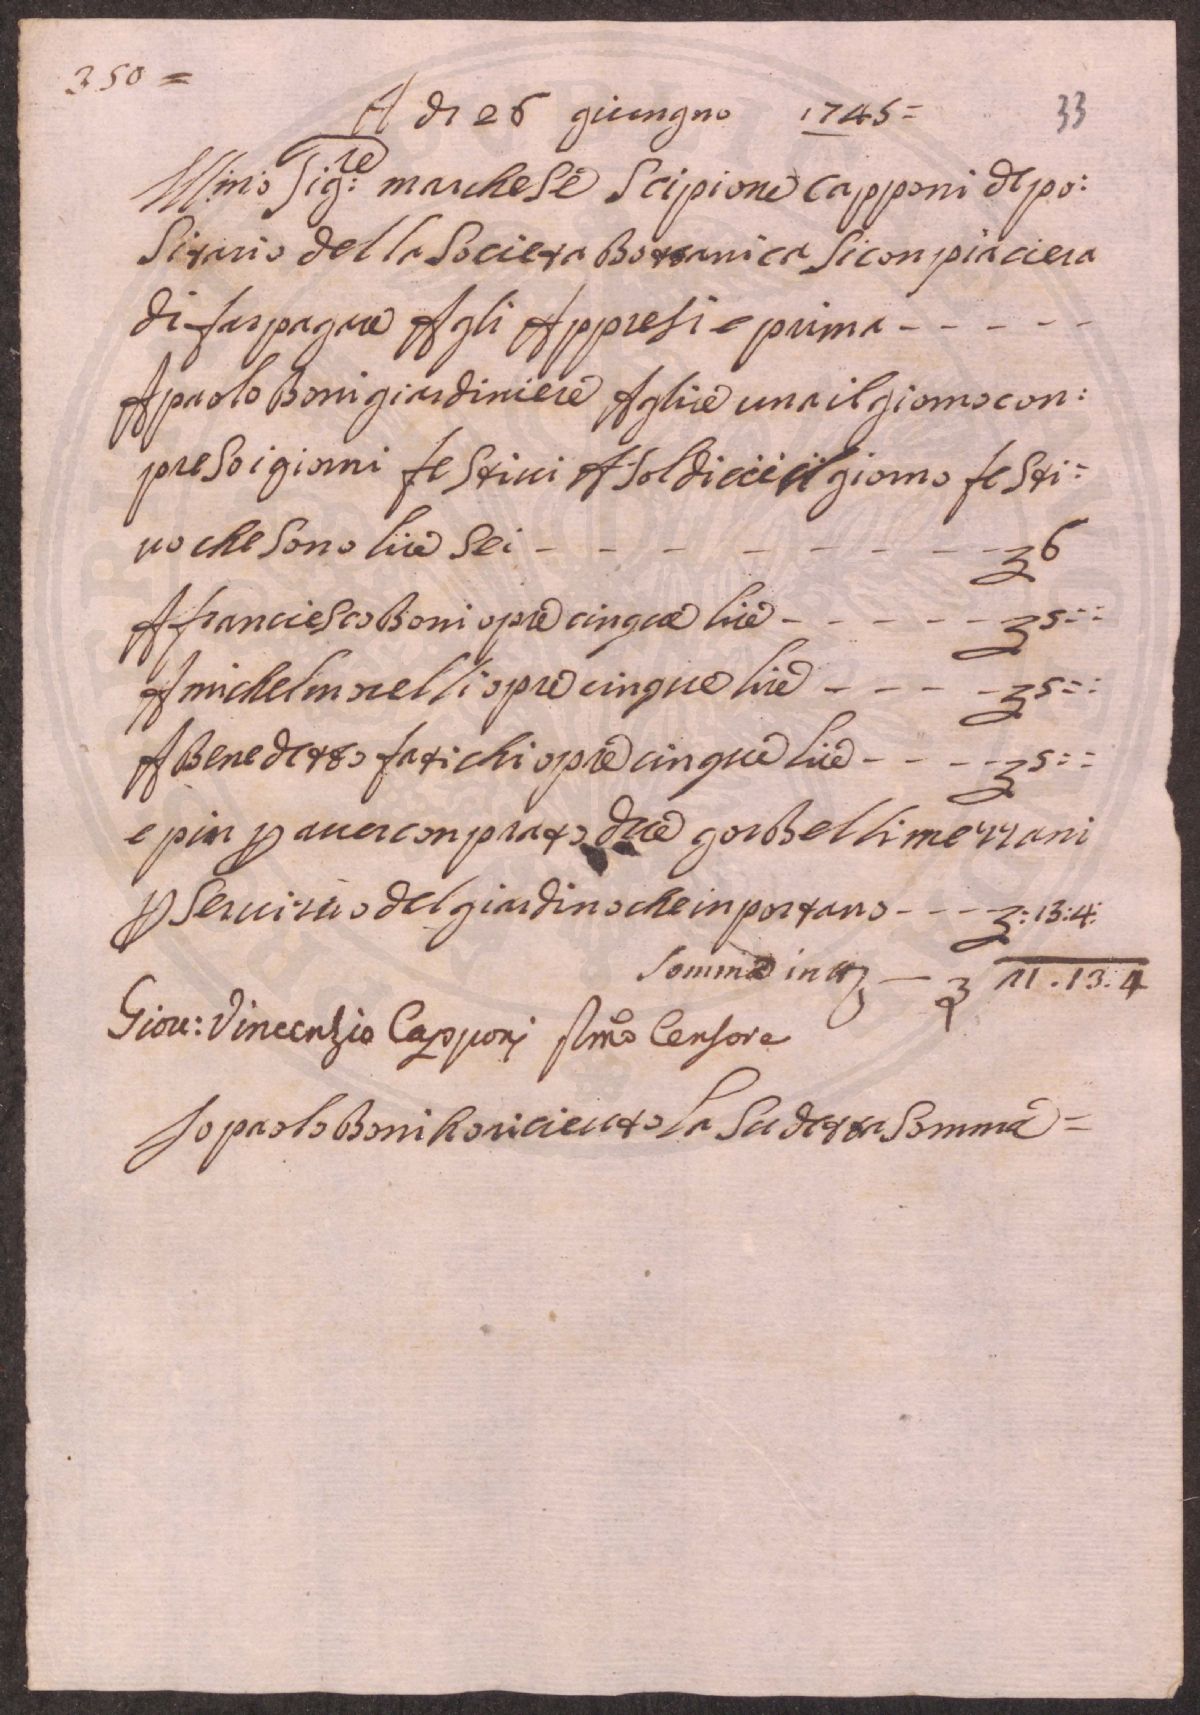 350 =
A di 26 giungno 1745 =
33
Ill:mo Sig:re marchese Scipione Capponi depo:
sitario della Societa Bottanica si conpiaciera
di far pagare Agli Appresi e prima - - - - -
A paolo Boni giardiniere A lire una il giorno con:
preso i giorni festiui A soldi il giorno festi:
uo che sono lire sei - - - - - - - - - £ 6
A franciesco Boni opre cinque lire - - - - - £ 5 : :
A michel morelli opre cinque lire - - - - £ 5 : :
A Benedetto fatichi opre cinque lire - - - - £ 5 : :
e piu p auer conprato due gorBelli mezzani
p seruizio del giardino che inportano - - - £ : 13 : 4 :
somma in tt° — £ 21 . 13 . 4
Giou: Vincenzio Capponi Pmo Censore
Io paolo Boni ho riceuuto la sudetta somma =